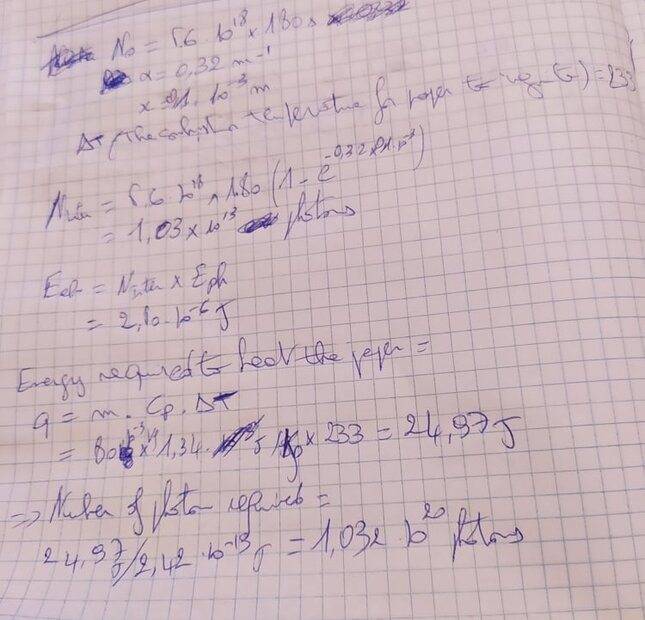 N₀ = 5.6 10¹⁸ × 180 ×
α = 0,32 m⁻¹
x = 91. 10⁻³ m
ΔT (the temperature for paper to ignite) = 233
= 5.6 10¹⁸ × 180 (1 - e^(-0,32×91.10⁻³))
= 1,03 × 10¹³ photons
= × Eph
= 2,10. 10⁻⁶ J
Energy required to heat the paper =
q = m. Cp. ΔT
= 80 10⁻³ × 1,34. × 233 = 24,97 J
⇒ Number of photon required =
24,97 J / 2,42 . 10⁻¹⁹ J = 1,032 . 10²⁰ photons